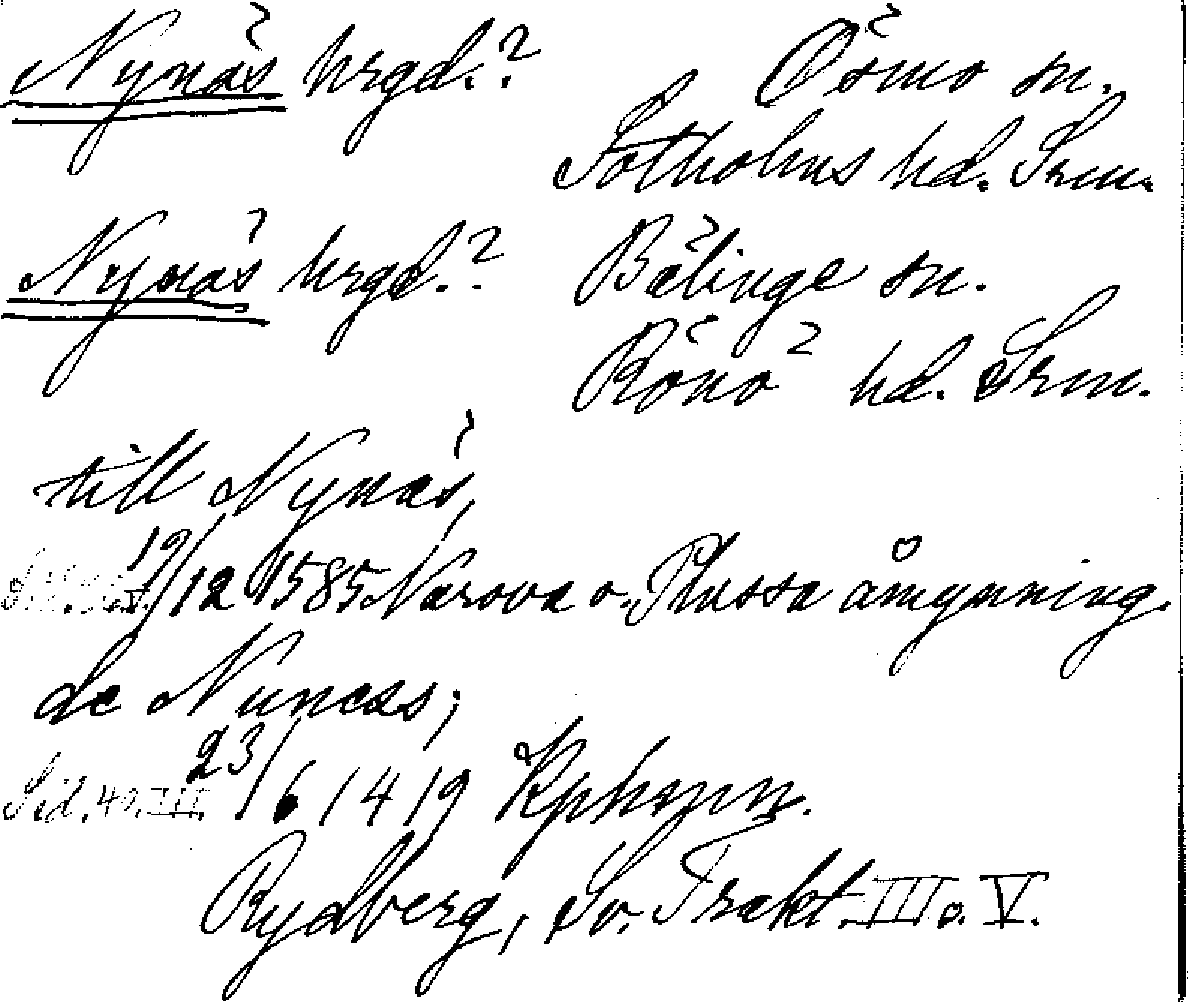 Nynäs hrgd.? Ösmo sn.
Sotholms hd. Srm.
Nynäs hrgd.? Bälinge sn.
Rönö hd. Srm.
till Nynäs,
19/12 1585 Narova o. Plussa åmynning.
de Nuness;
Sid. 40. III. 23/6 1419 Kphmn.
Rydberg, Sv. Trakt. III o. V.